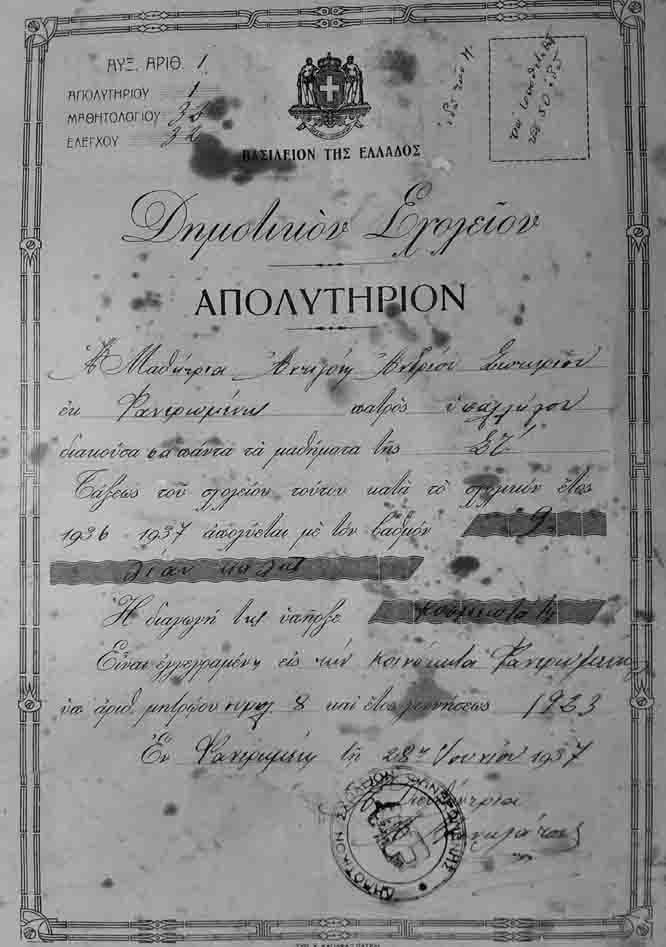 ΑΥΞ. ΑΡΙΘ. 1
ΑΠΟΛΥΤΗΡΙΟΥ 1
ΜΑΘΗΤΟΛΟΓΙΟΥ 32
ΕΛΕΓΧΟΥ 32
ΒΑΣΙΛΕΙΟΝ ΤΗΣ ΕΛΛΑΔΟΣ
Δημοτικὸν Σχολεῖον
ΑΠΟΛΥΤΗΡΙΟΝ
Ἡ Μαθήτρια
ἐκ Φανερωμένης πατρὸς ὑπαλλήλου
διακούσασα πάντα τὰ μαθήματα τῆς ΣΤ΄
Τάξεως τοῦ σχολείου τούτου κατὰ τὸ σχολικὸν ἔτος
1936 - 1937 ἀπολύεται μὲ τὸν βαθμόν 9
λίαν καλῶς
Ἡ διαγωγή της ὑπῆρξε κοσμιωτάτη
Εἶναι ἐγγεγραμένη εἰς τὴν κοινότητα Φανερωμένης
ὑπ' ἀριθ. μητρῴου 8 καὶ ἔτος γεννήσεως 1923
Ἐν Φανερωμένῃ τῇ 28ῃ Ἰουνίου 1937
Διευθύντρια
ΔΗΜΟΤΙΚΟΝ ΣΧΟΛΕΙΟΝ ΦΑΝΕΡΩΜΕΝΗΣ